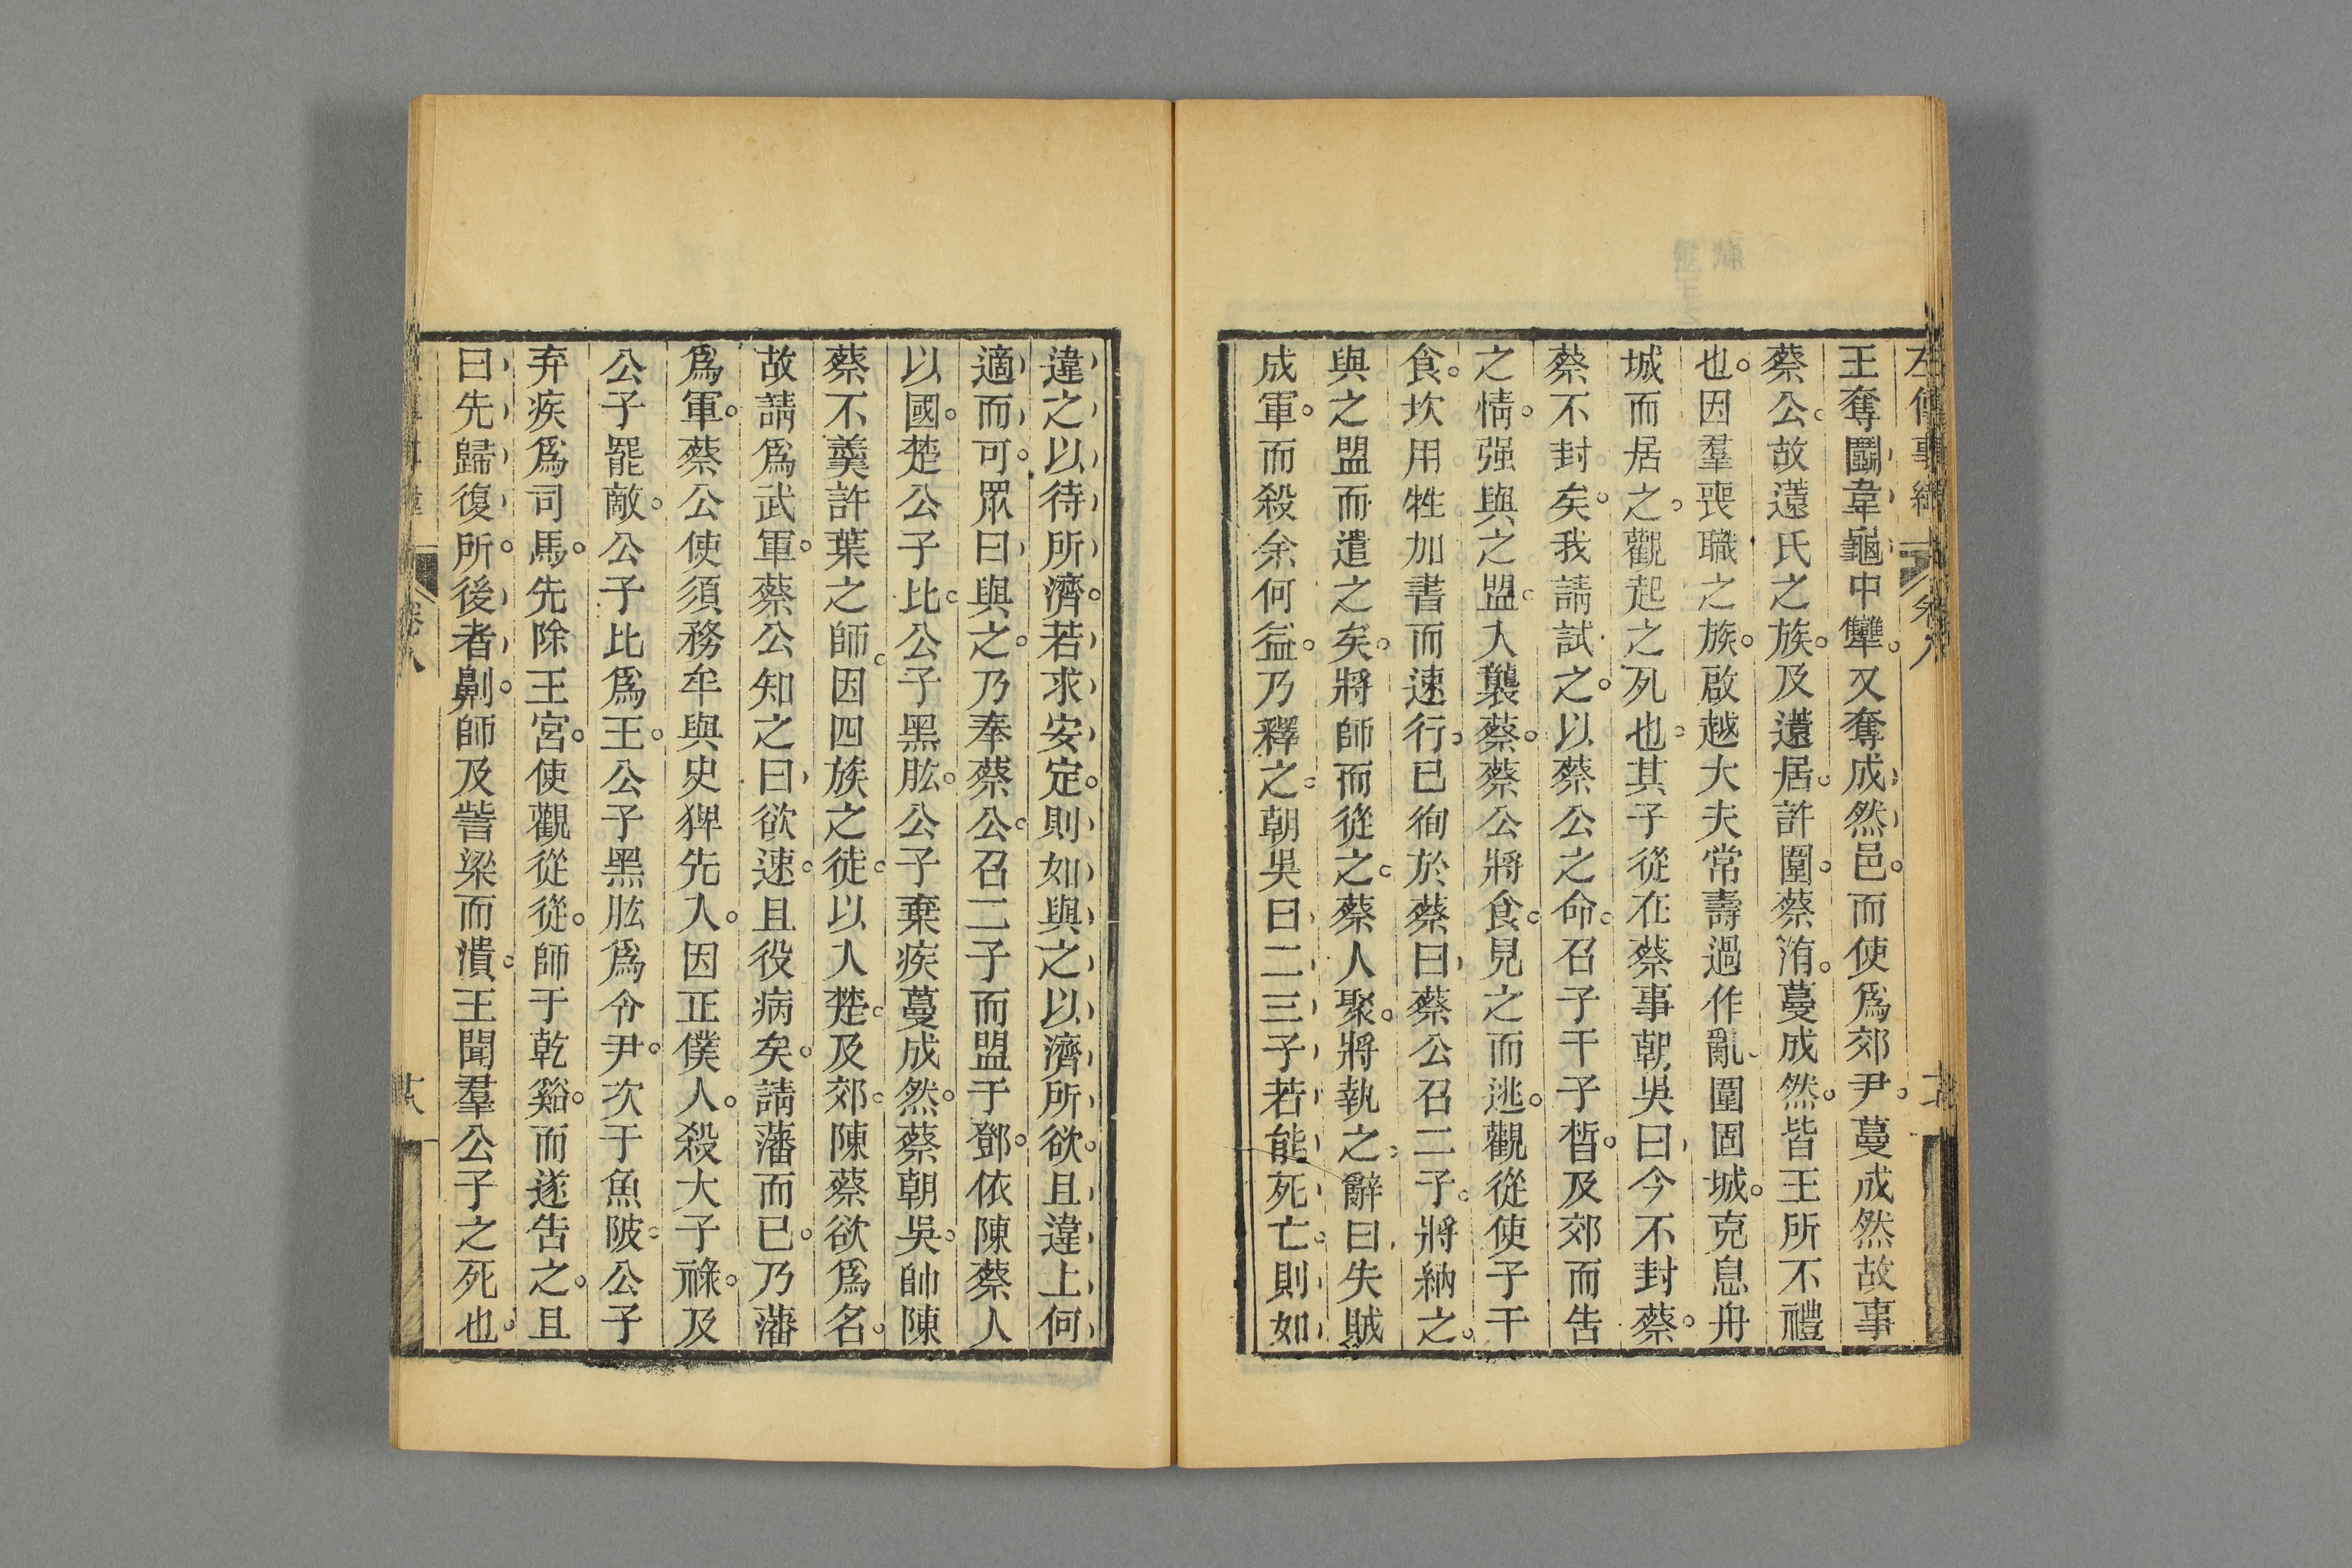 王奪鬭韋龜中犫又奪成然邑而使爲郊尹蔓成然故事
蔡公故薳氏之族及薳居許圍蔡洧蔓成然皆王所不禮
也因羣喪職之族啟越大夫常壽過作亂圍固城克息舟
城而居之觀起之死也其子從在蔡事朝吳曰今不封蔡
蔡不封矣我請試之以蔡公之命召子干子晳及郊而告
之情强與之盟入襲蔡蔡公將食見之而逃觀從使子干
食坎用牲加書而速行已徇於蔡曰蔡公召二子將納之
與之盟而遣之矣將師而從之蔡人聚將執之辭曰失賊
成軍而殺余何益乃釋之朝吳曰二三子若能死亡則如
違之以待所濟若求安定則如與之以濟所欲且違上何
適而可眾曰與之乃奉蔡公召二子而盟于鄧依陳蔡人
以國楚公子比公子黑肱公子棄疾蔓成然蔡朝吳帥陳
蔡不羹許葉之師因四族之徒以入楚及郊陳蔡欲爲名
故請爲武軍蔡公知之曰欲速且役病矣請藩而已乃藩
爲軍蔡公使須務牟與史猈先入因正僕人殺大子祿及
公子罷敵公子比爲王公子黑肱爲令尹次于魚陂公子
弃疾爲司馬先除王宮使觀從從師于乾谿而遂告之且
曰先歸復所後者劓師及訾梁而潰王聞羣公子之死也
卷八